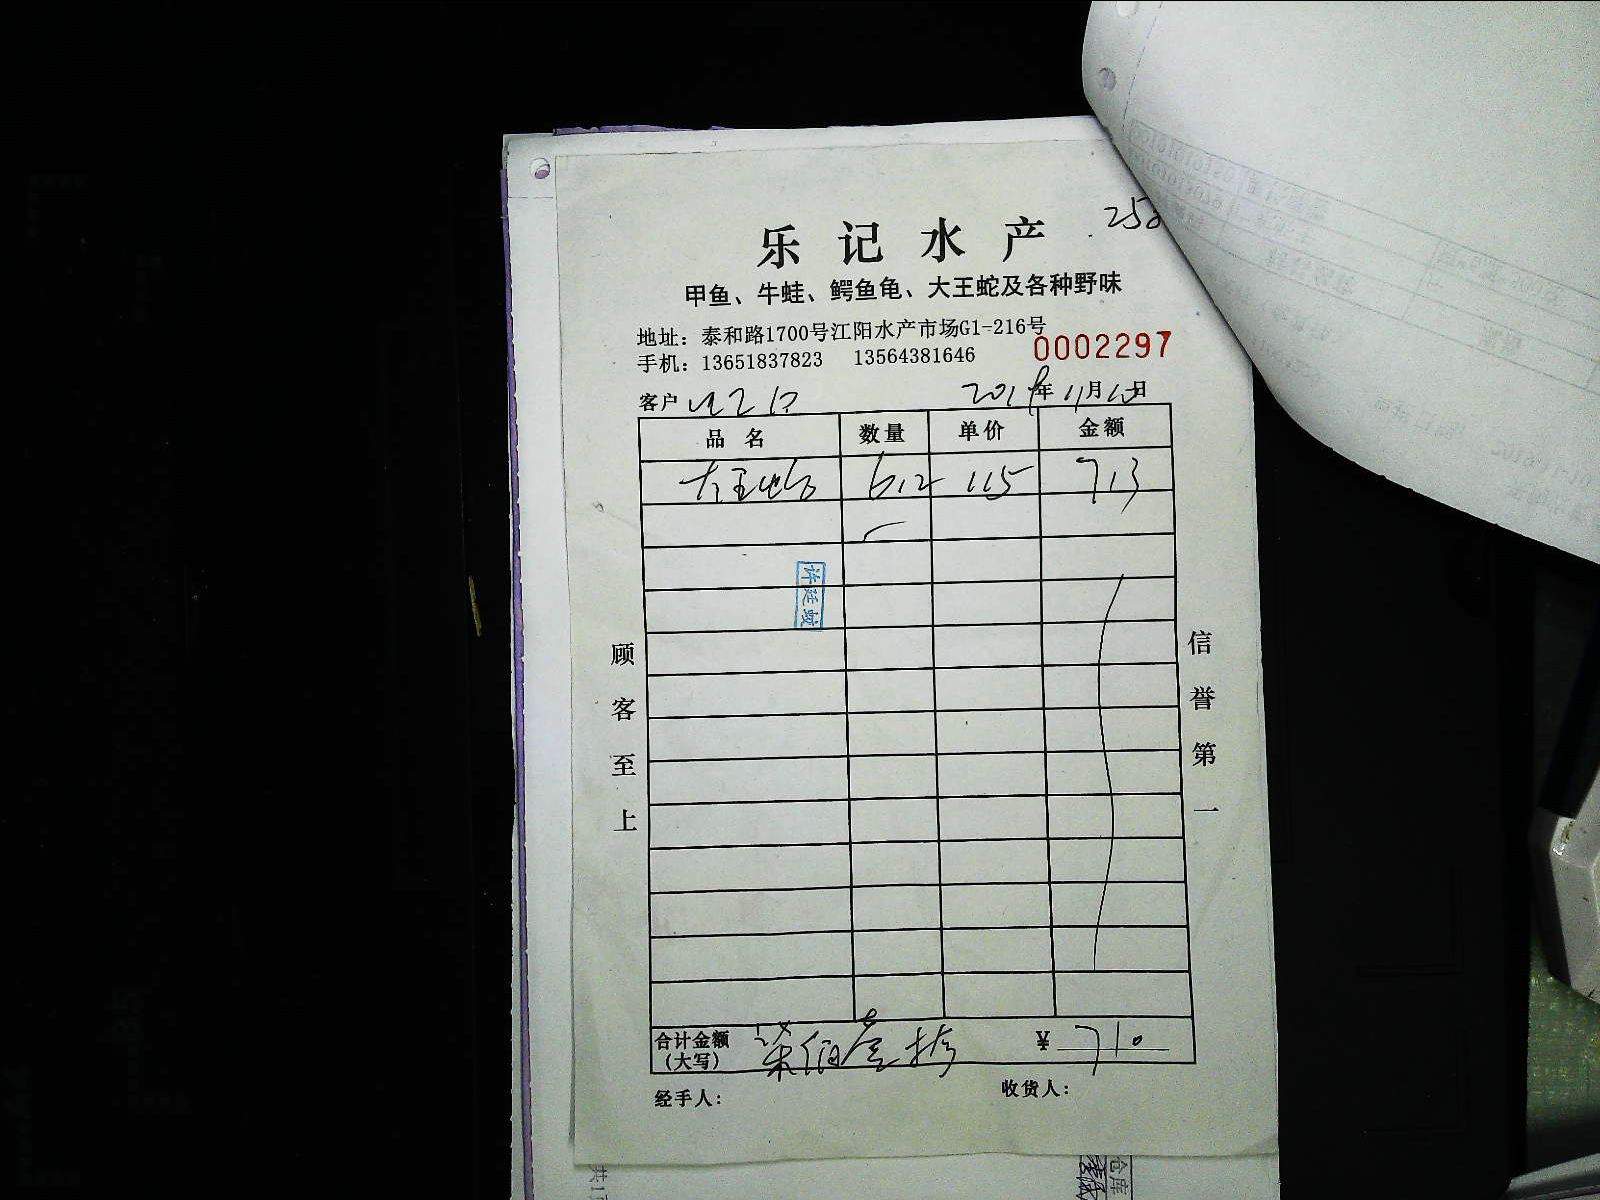 乐记水产
甲鱼、牛蛙、鳄鱼龟、大王蛇及各种野味
地址：泰和路1700号江阳水产市场G1-216号
手机：13651837823 13564381646
0002297
客户 年11月10日
品名 数量 单价 金额
大王蛇 6.2 115 713
许廷斌
顾客至上
信誉第一
合计金额 柒佰壹拾 ¥ 710
(大写)
经手人： 收货人：
仓库